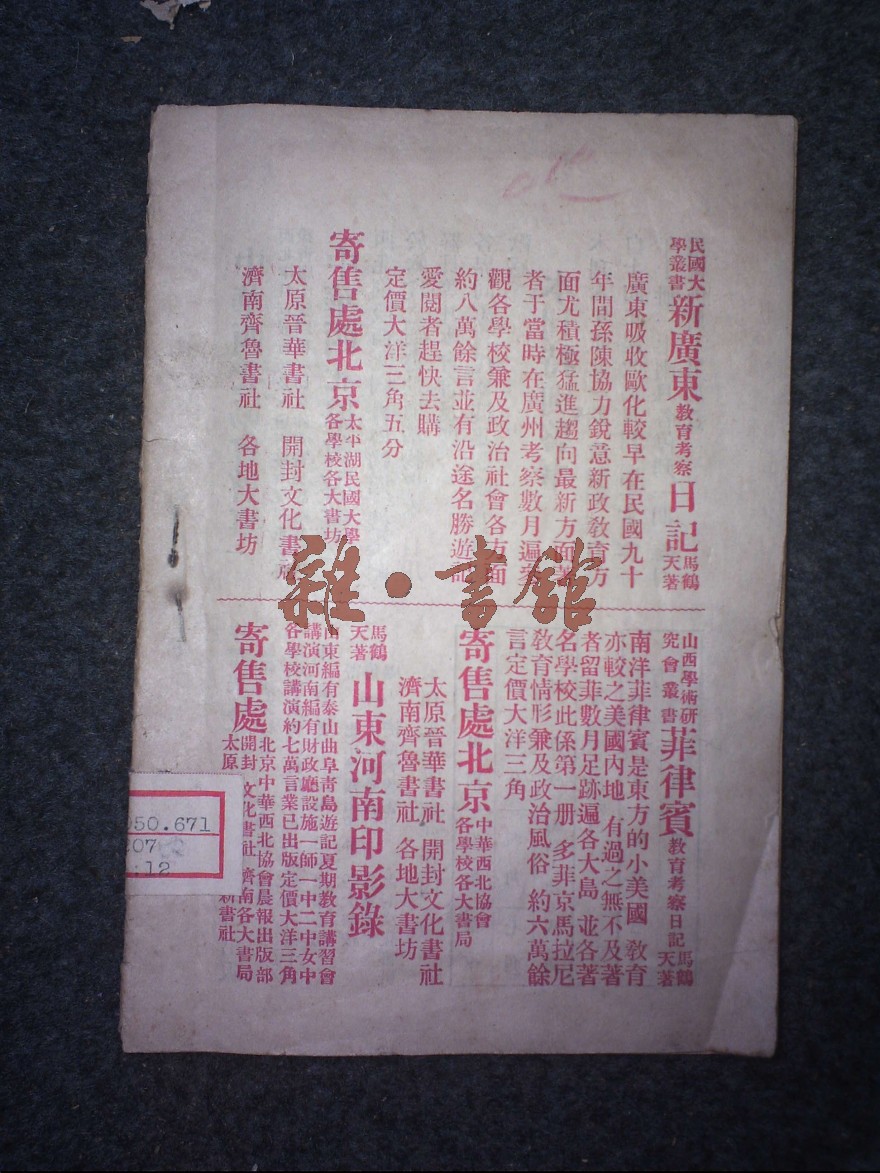 民國大
學叢書
新廣東
教育考察
日記
馬鶴
天著
廣東吸收歐化較早在民國九十
年間孫陳協力銳意新政敎育方
面尤積極猛進趨向最新方面著
者于當時在廣州考察數月遍
觀各學校兼及政治社會各方面
約八萬餘言並有沿途名勝遊記
愛閱者趕快去購
定價大洋三角五分
寄售處北京
太平湖民國大學
各學校各大書坊
太原晉華書社 開封文化書社
濟南齊魯書社 各地大書坊
山西學術研
究會叢書
菲律賓
教育考察日記
馬鶴
天著
南洋菲律賓是東方的小美國 敎育
亦較之美國內地 有過之無不及著
者留菲數月足跡遍各大島 並各著
名學校此係第一册 多菲京馬拉尼
敎育情形兼及政治風俗 約六萬餘
言定價大洋三角
寄售處北京
中華西北協會
各學校各大書局
太原晉華書社 開封文化書社
濟南齊魯書社 各地大書坊
馬鶴
天著
山東河南印影錄
山東編有泰山曲阜青島遊記夏期教育講習會
講演河南編有財政廳設施一師一中二中女中
各學校講演約七萬言業已出版定價大洋三角
寄售處
北京中華西北協會晨報出版部
開封 文化書社 濟南各大書局
太原 新書社
雜·書館
050.671
207
.12